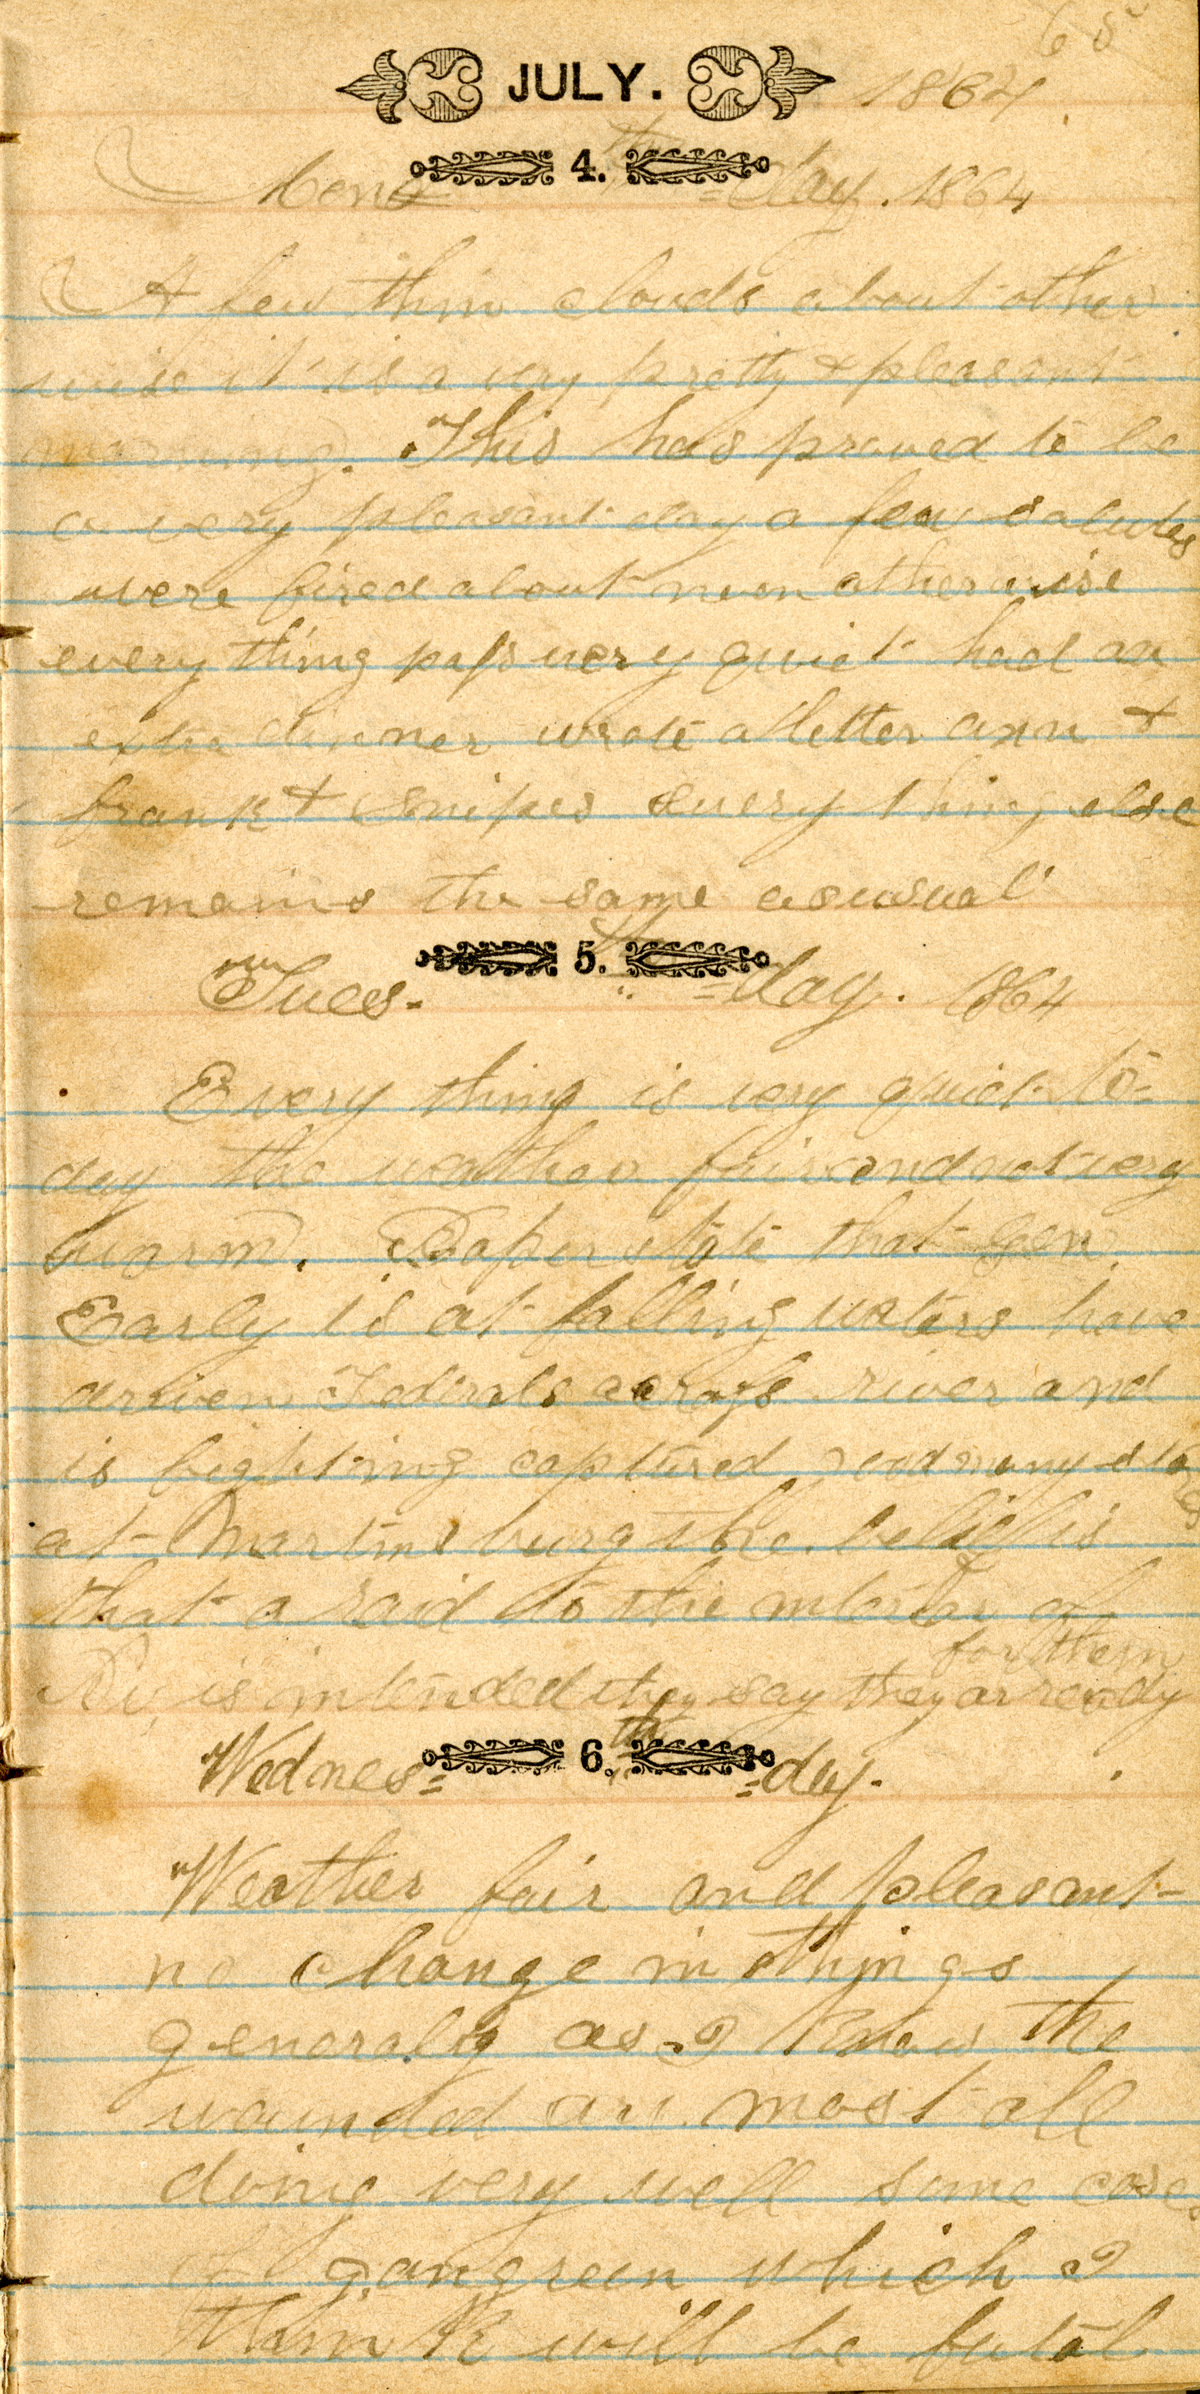 65
JULY. 1864
4.th
Mon = day. 1864
A few thin clouds about other
wise it is a very pretty & pleasant
morning. This has proved to be
a very pleasant day a few salutes
were fired about noon otherwise
every thing pass very quiet had an
extra dinner wrote a letter ann &
frank & Snipes every thing else
remains the same as usual
5.th
Tues- = day. 1864
Every thing is very quiet to-
day the weather fair and not very
warm. Paper state that Gen
Early is at falling waters have
driven Federals across river and
is fighting captured good many stores
at Martinsburg the belief is
that a raid to the interior of
is intended they say they ar ready
for them
6.th
Wednes= =day.
Weather fair and pleasant
no change in things
generaly as I know the
wounded are most all
doing very well some cases
of gangreen which I
think will be fatal